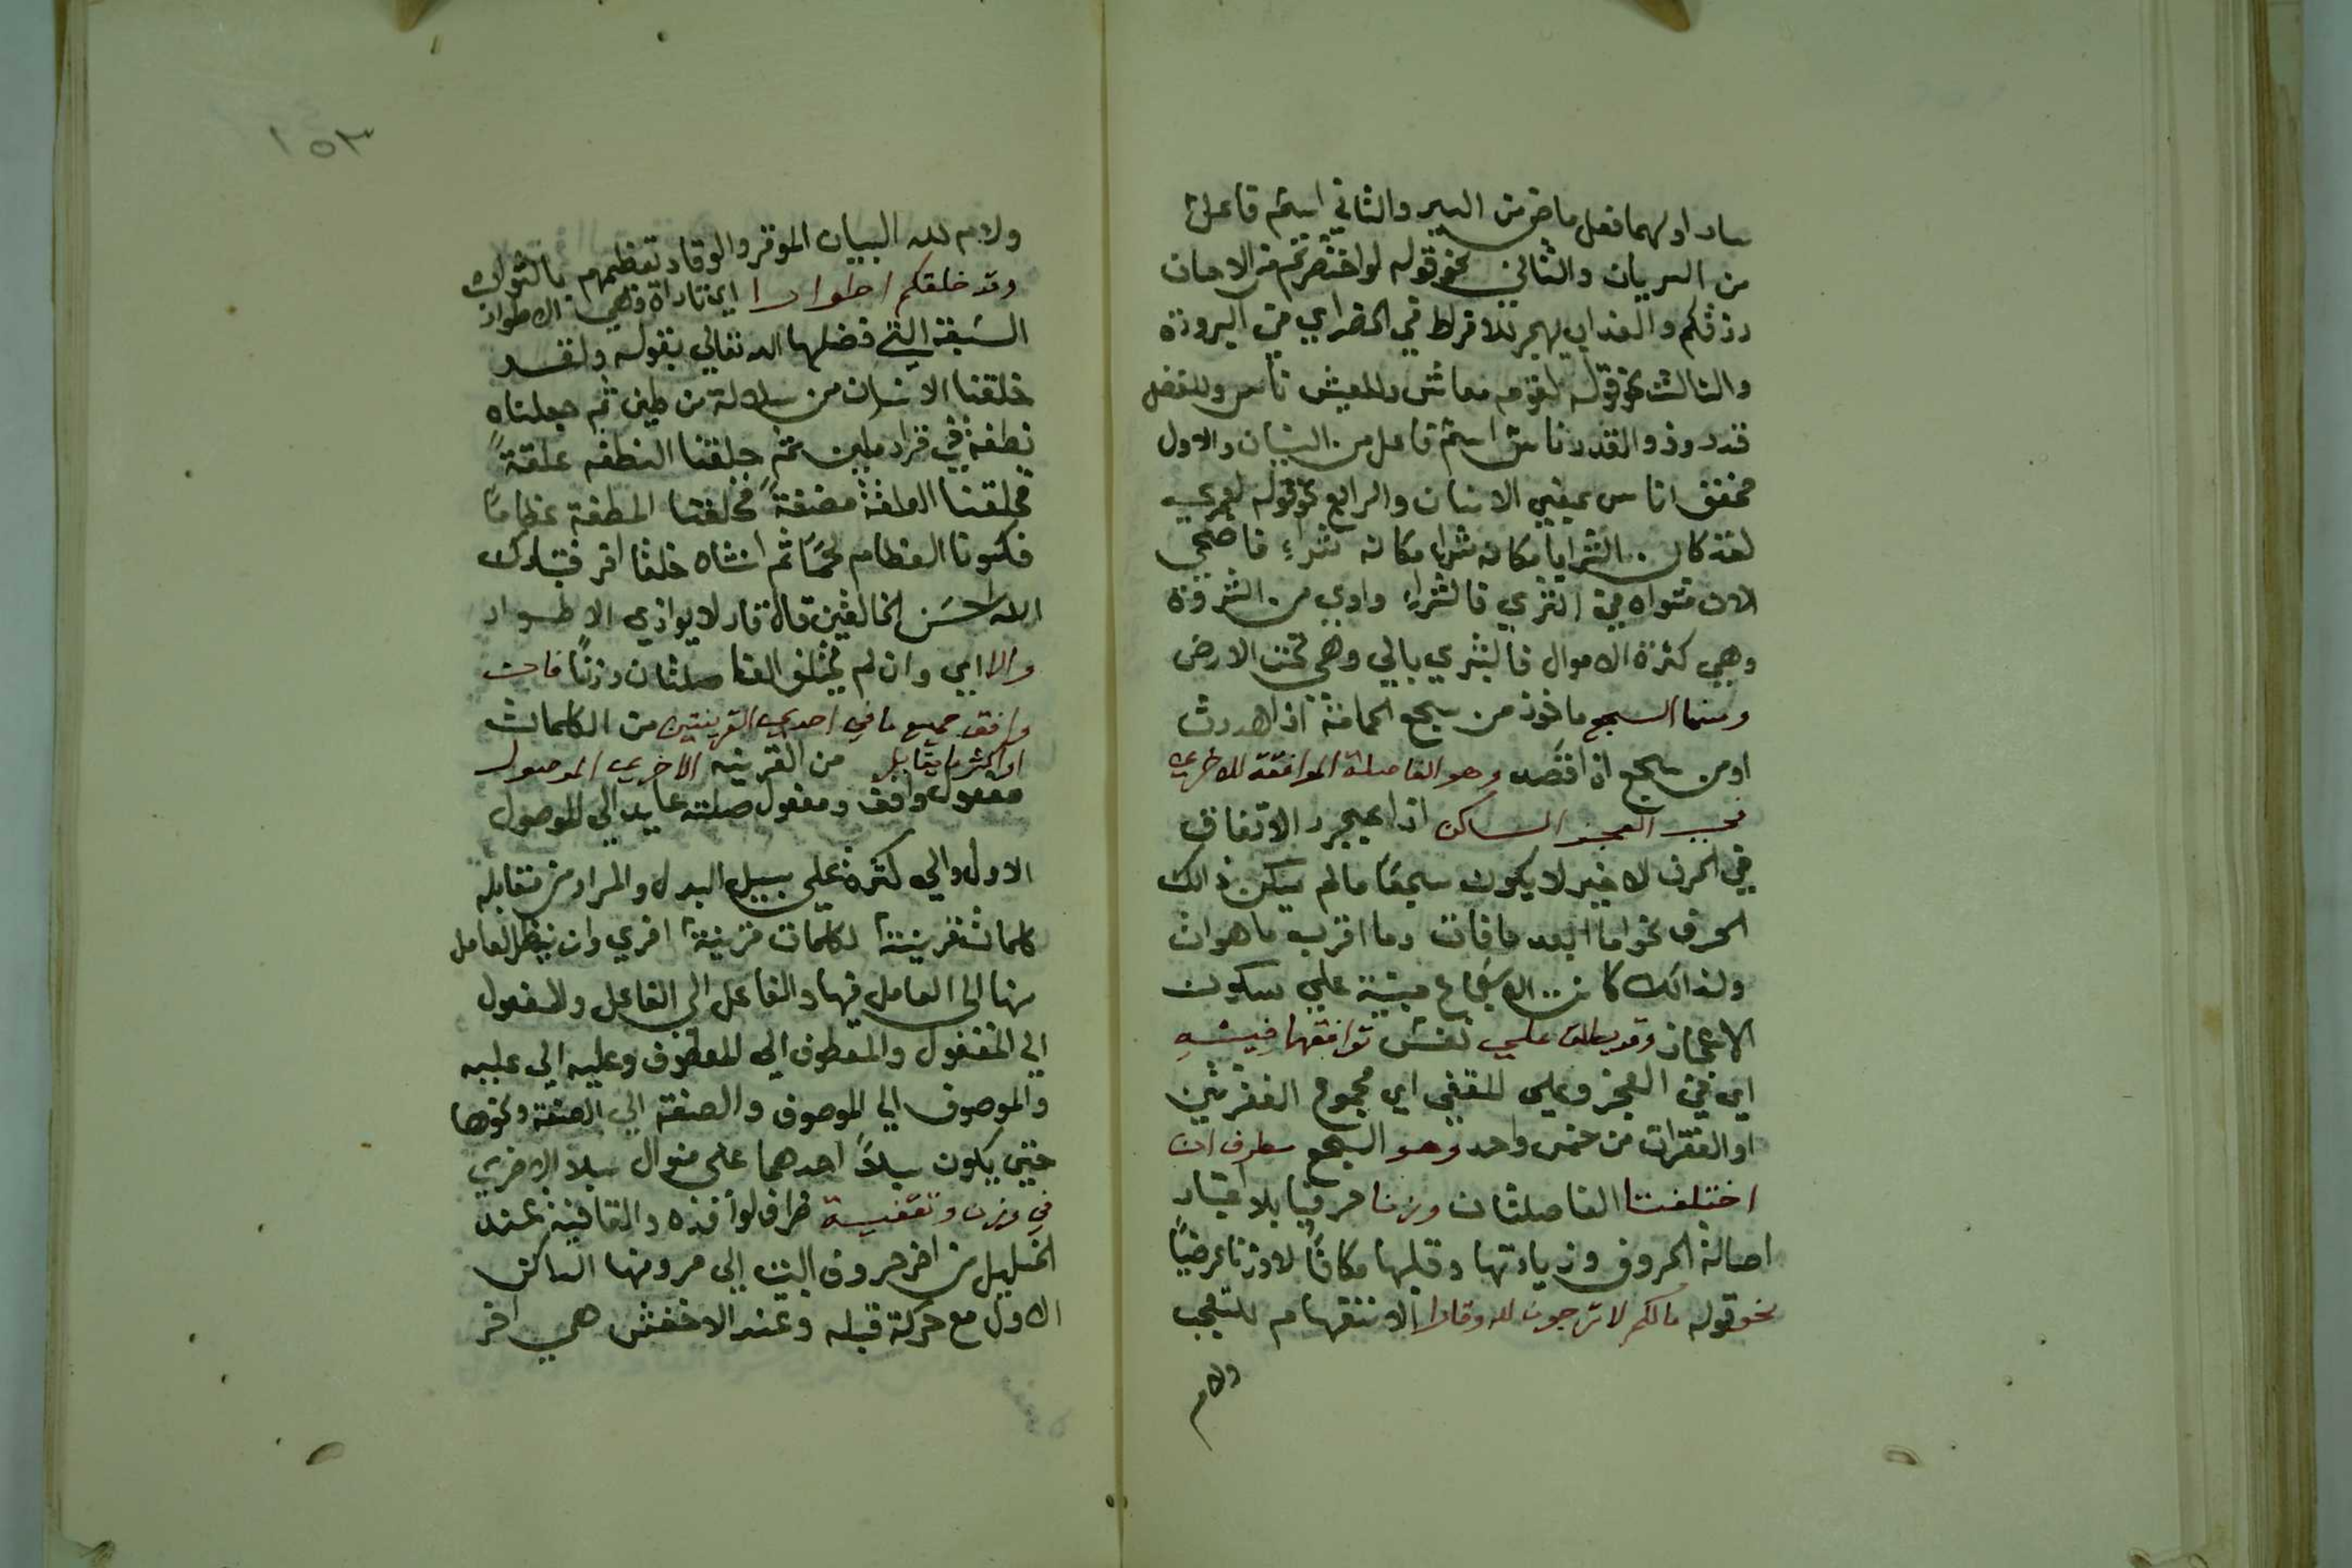 سار اولهما فعل ماض من السير والثاني اسم فاعل
من السريان والثاني نحو قوله لو اختصرتم من الاحسان
زرتكم والعذب يهجر للافراط في الخصر اي في البرودة
والثالث نحو قوله لقوم معاش وللعيش ناس وللفضل
قدر وذو القدر ناس اسم فاعل من النسيان والاول
مخفف اناس بمعني الانسان والرابع نحو قوله لعمري
لقد كان الثريا مكانه ثراء مكانه ثراء فاضحي
الان مثواه في الثري فالثراء واوي من الثروة
وهي كثرة الاموال فالثري يالي وهي تحت الارض
ومنها السجع ماخوذ من سجع الحمامة اذا هدرت
او من سجع اذا قصد وهو الفاصلة الموافقة للاخري
في العجز الساكن اذا بمجرد الاتفاق
في الحرف الاخير لا يكون سجعا مالم يسكن ذالك
الحرف نحو اما ابعد ما فات وما اقرب ما هو ات
ولذالك كانت الاسجاع مبنية علي سكون
الاعجاز وقد يطلق علي نفس توافقها فيه
اي في العجز وعلي المقفي اي مجموع الفقرتين
او الفقرات من حمس واحد وهو السجع مطرف ان
اختلفتا الفاصلتان وزنا حرفيا بلا اعتبار
اصالة الحروف وزيادتها وقلبها مكانا لا وزنا عرضيا
نحو قوله مالكم لا ترجون لله وقارا الاستفهام للتعجب
ولام
١٥٣
ولام لله البيان الموقر والوقار تعظيمهم بالثواب
وقد خلقكم اطوارا اي تارات وهي الاطوار
السبعة التي فضلها الله تعالي بقوله ولقد
خلقنا الانسان من سلالة من طين ثم جعلناه
نطفة في قرار مكين ثم خلقنا النطفه علقة
فخلقنا العلقة مضغة فخلقنا المطغة عظاما
فكسونا العظام لحما ثم انشاه خلقا اخر فتبارك
الله احسن الخالقين قالة قار لا يوازي الاطوار
والا اي وان لم يختلف الفاصلتان وزنا فان
وافق جميع ما في احدي القرينتين من الكلمات
او اكثر ما يقابل من القرينه الاخري الموصول
مفعول وافق ومفعول صلته عايد الي الموصول
الاول والي كثرة علي سبيل البدل والمراد من مقابلة
كلمات قرينة لكلمات قرينة اخري وان ينظر العامل
منها الي العامل فيها والفاعل الي الفاعل والمفعول
الي المفعول والمعطوف الي المعطوف وعليه الي عليه
والموصوف الي الموصوف والصفة الي الصفة ونحوها
حتي يكون سبلا احدهما علي منوال سبلا الاخري
في وزن وتقفية ظراف لوافده والقافية عند
الخليل من اخر حروف البيت الي حرونها الساكن
الاول مع حركة قبله وعند الاخفش هي اخر